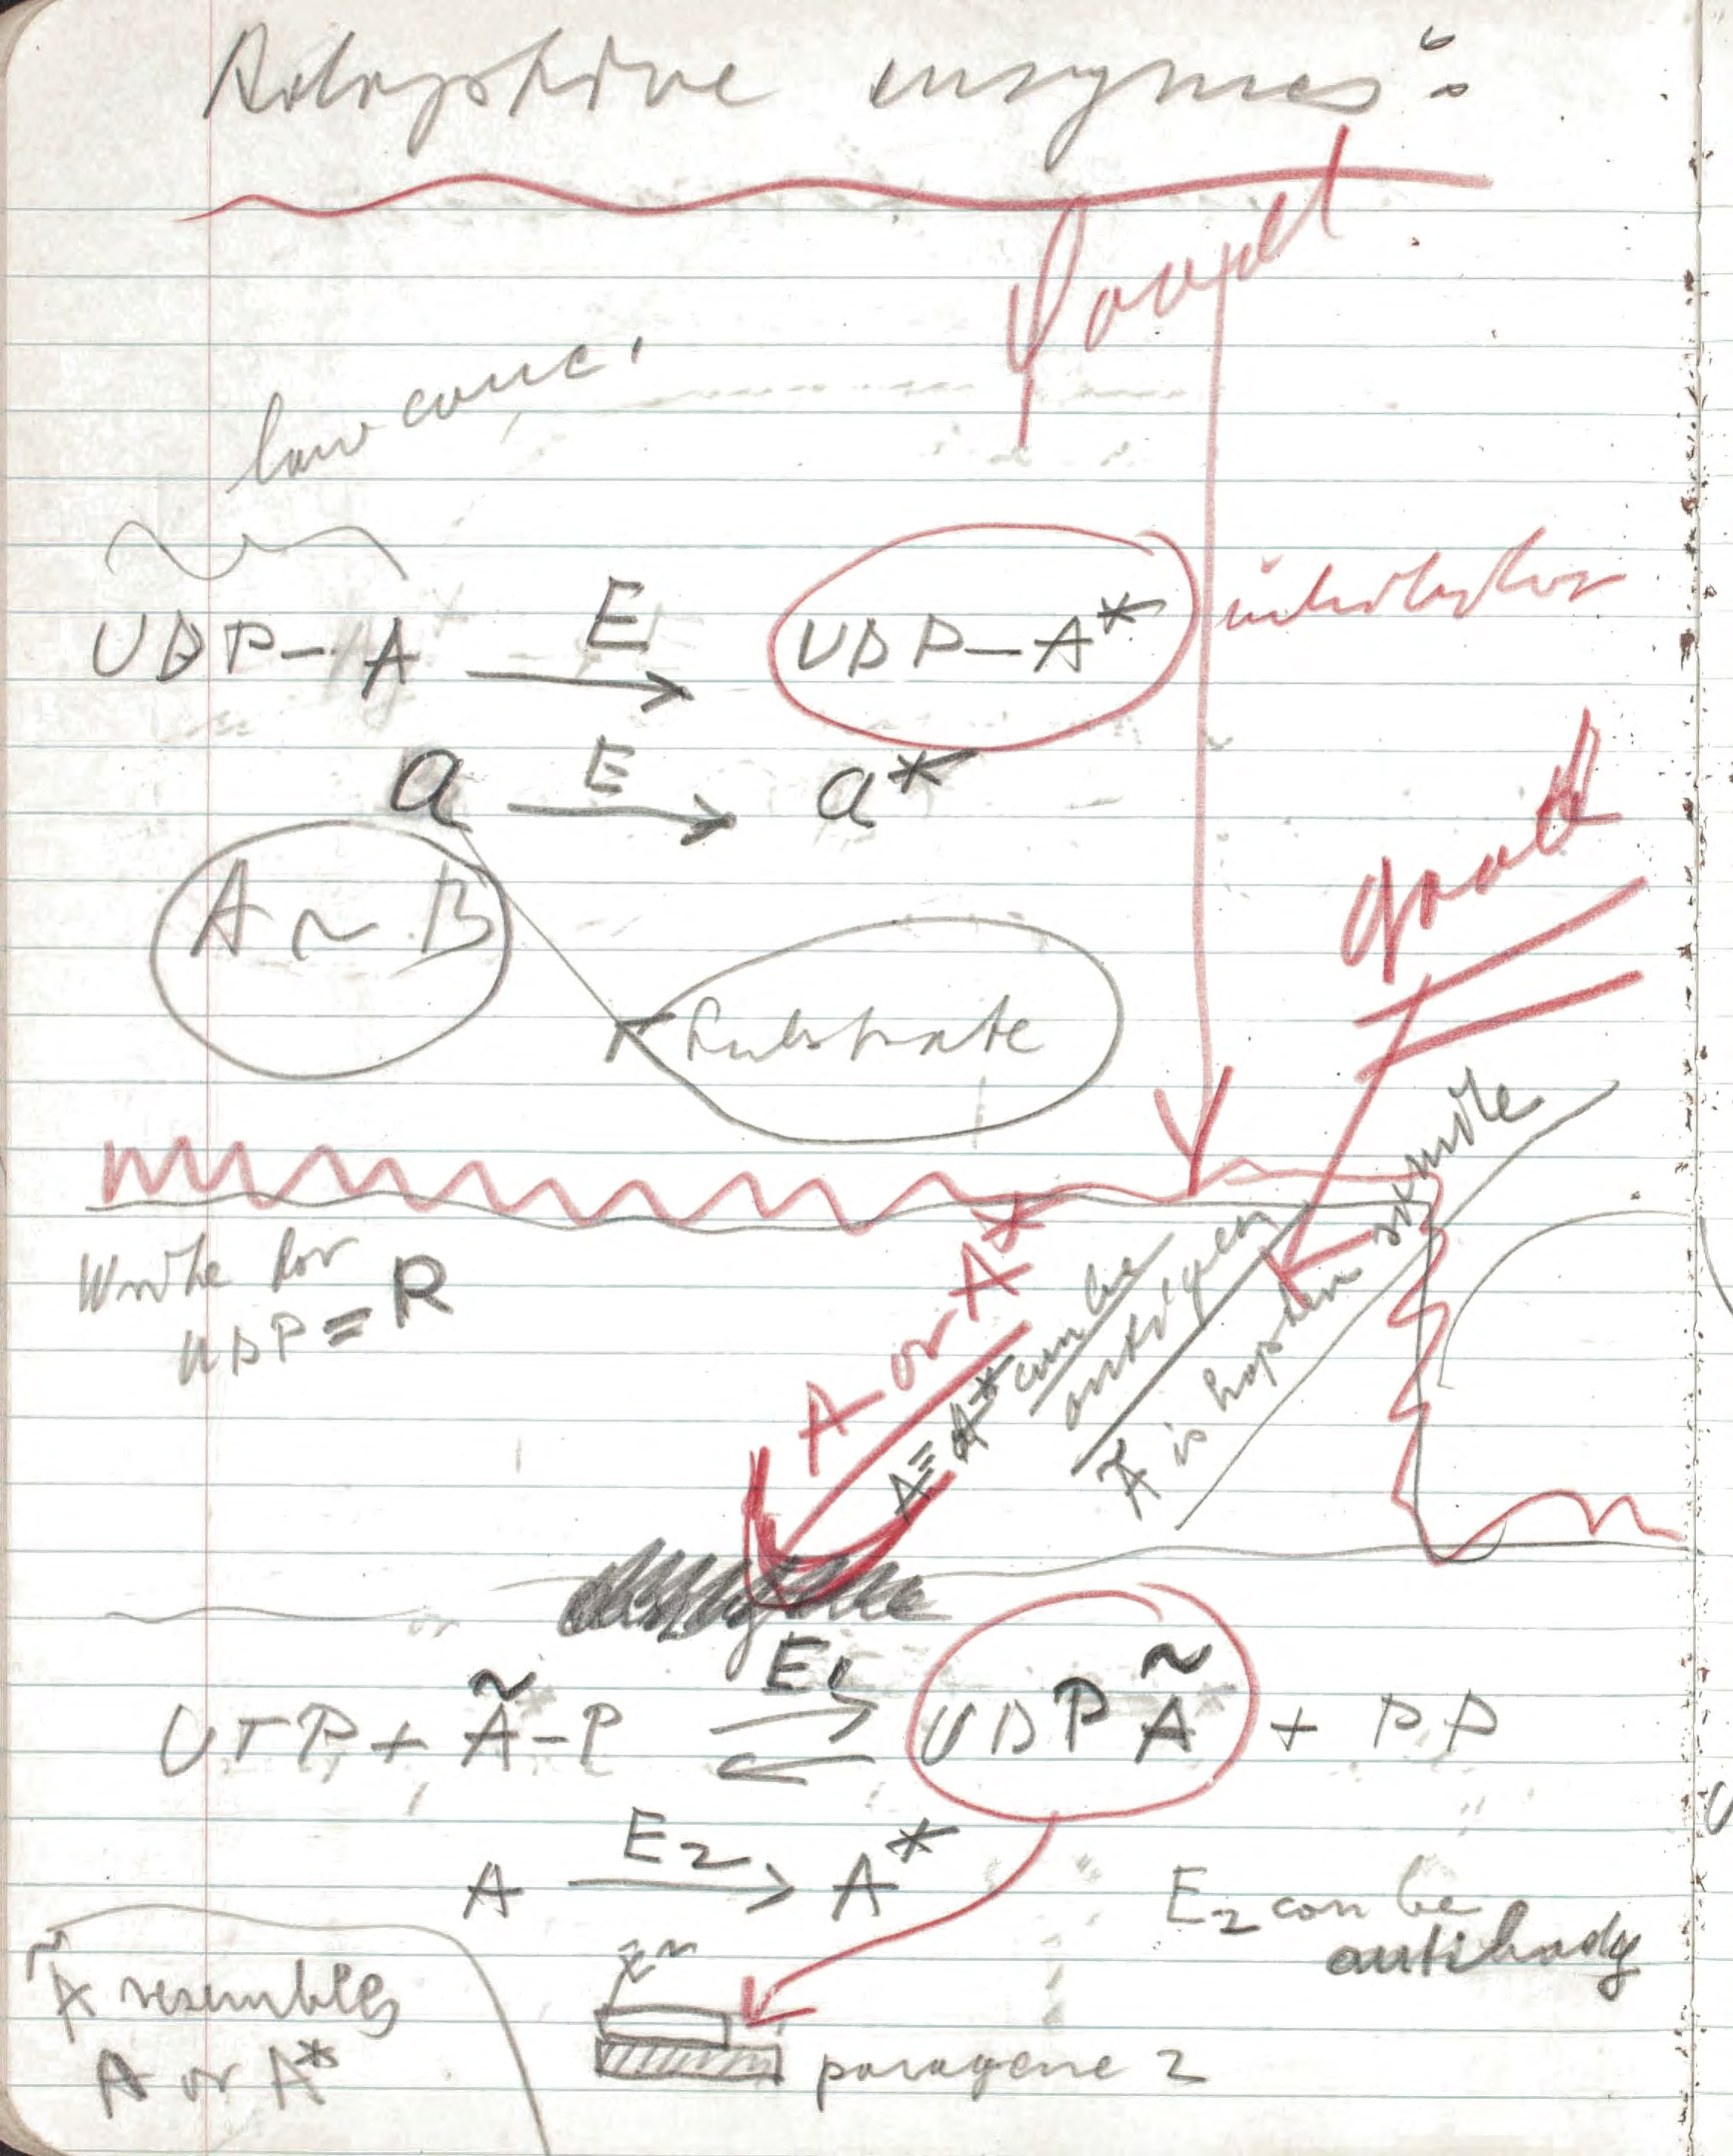 Adaptive enzymes:
low conc.
UDP–A E→ UDP–A* inhibitor
a E→ a*
good
A ~ B
Substrate
Write for
UDP ≡ R
A or A*
A ≡ A* can be
antigen
Ã is hapten
UTP + Ã–P E1 ⇌ UDP Ã + PP
A E2→ A*
E2 can be
antibody
Ã resembles
A or A*
paragene 2